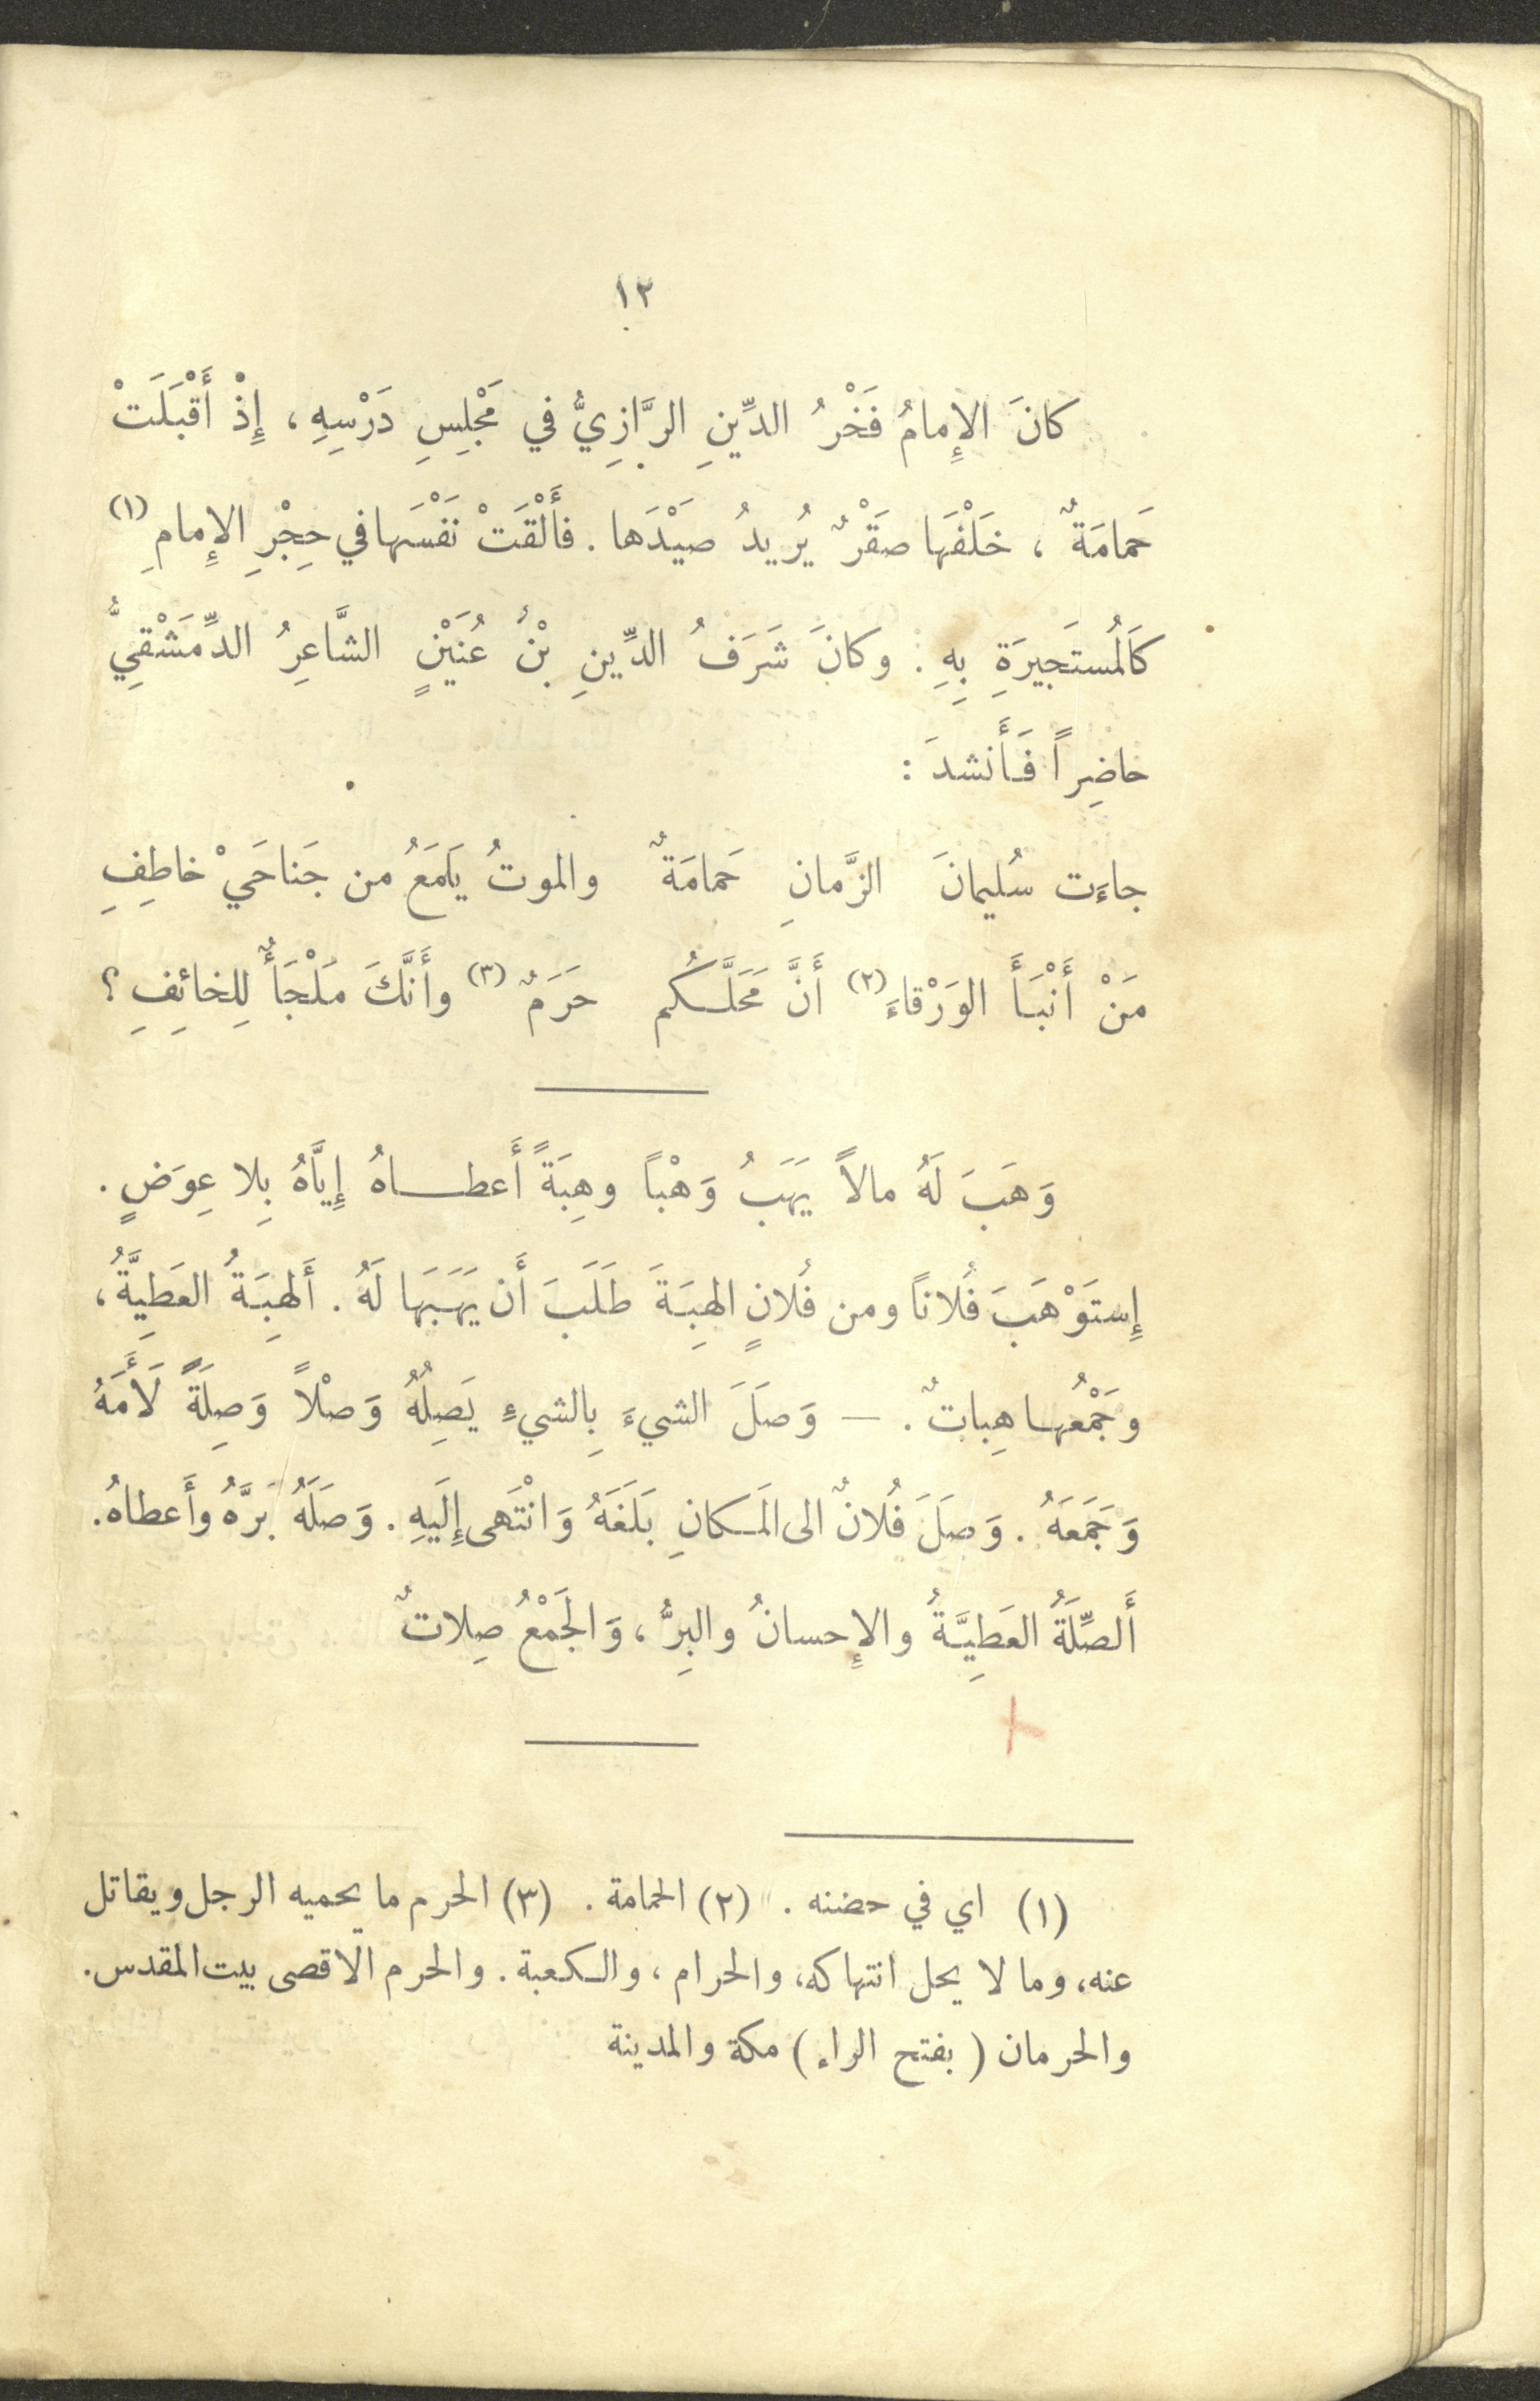 ١٢
كانَ الإِمامُ فَخْرُ الدِّينِ الرَّازِيُّ في مَجْلِسِ دَرْسِهِ ، إِذْ أَقْبَلَتْ
حَمامَةٌ ، خَلْفَها صَقْرٌ يُرِيدُ صَيْدَها . فأَلْقَتْ نَفْسَها في حِجْرِ الإِمامِ (١)
كَالمُستَجِيرَةِ بِهِ . وكانَ شَرَفُ الدِّينِ بْنُ عُنَيْنٍ الشَّاعِرُ الدِّمَشْقِيُّ
حاضِراً فَأَنشدَ :
جاءَت سُليمانَ الزَّمانِ حَمامَةٌ والموتُ يَلمَعُ من جَناحَيْ خاطِفِ
مَنْ أَنْبَأَ الوَرْقاءَ (٢) أَنَّ مَحَلَّكُم حَرَمٌ (٣) وأَنَّكَ مَلْجَأٌ لِلخائِفِ ؟
وَهَبَ لَهُ مالاً يَهَبُ وَهْباً وهِبَةً أَعطاهُ إِيَّاهُ بِلا عِوَضٍ .
إِستَوْهَبَ فُلاناً ومن فُلانٍ الهِبَةَ طَلَبَ أَن يَهَبَها لَهُ . أَلهِبَةُ العَطِيَّةُ ،
وجَمْعُها هِباتٌ . — وَصَلَ الشيءَ بِالشيءِ يَصِلُهُ وَصْلاً وَصِلَةً لَأَمَهُ
وَجَمَعَهُ . وَصَلَ فُلانٌ الى المَكانِ بَلَغَهُ وَانْتَهى إِلَيهِ . وَصَلَهُ بَرَّهُ وأَعطاهُ .
أَلصِّلَةُ العَطِيَّةُ والإِحسانُ والبِرُّ ، وَالجَمْعُ صِلاتٌ
(١) اي في حضنه . (٢) الحمامة . (٣) الحرم ما يحميه الرجل ويقاتل
عنه ، وما لا يحل انتهاكه ، والحرام ، والكعبة . والحرم الاقصى بيت المقدس .
والحرمان ( بفتح الراء ) مكة والمدينة